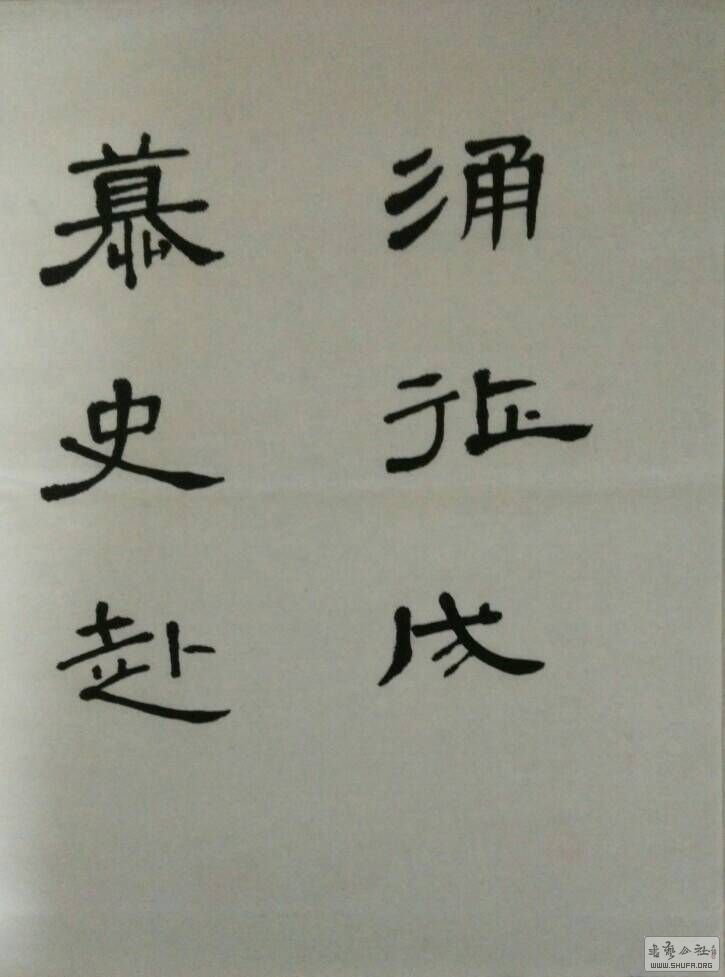 涌征成
慕史赴
书艺公社
WWW.SHUFA.ORG